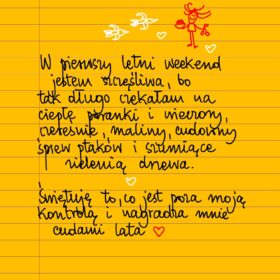 W pierwszy letni weekend
jestem szczęśliwa, bo
tak długo czekałam na
ciepłe poranki i wieczory,
czereśnie, maliny, cudowny
śpiew ptaków i szumiące
zielenią drzewa.
Świętuję to, co jest poza moją
kontrolą i nagradza mnie
cudami lata